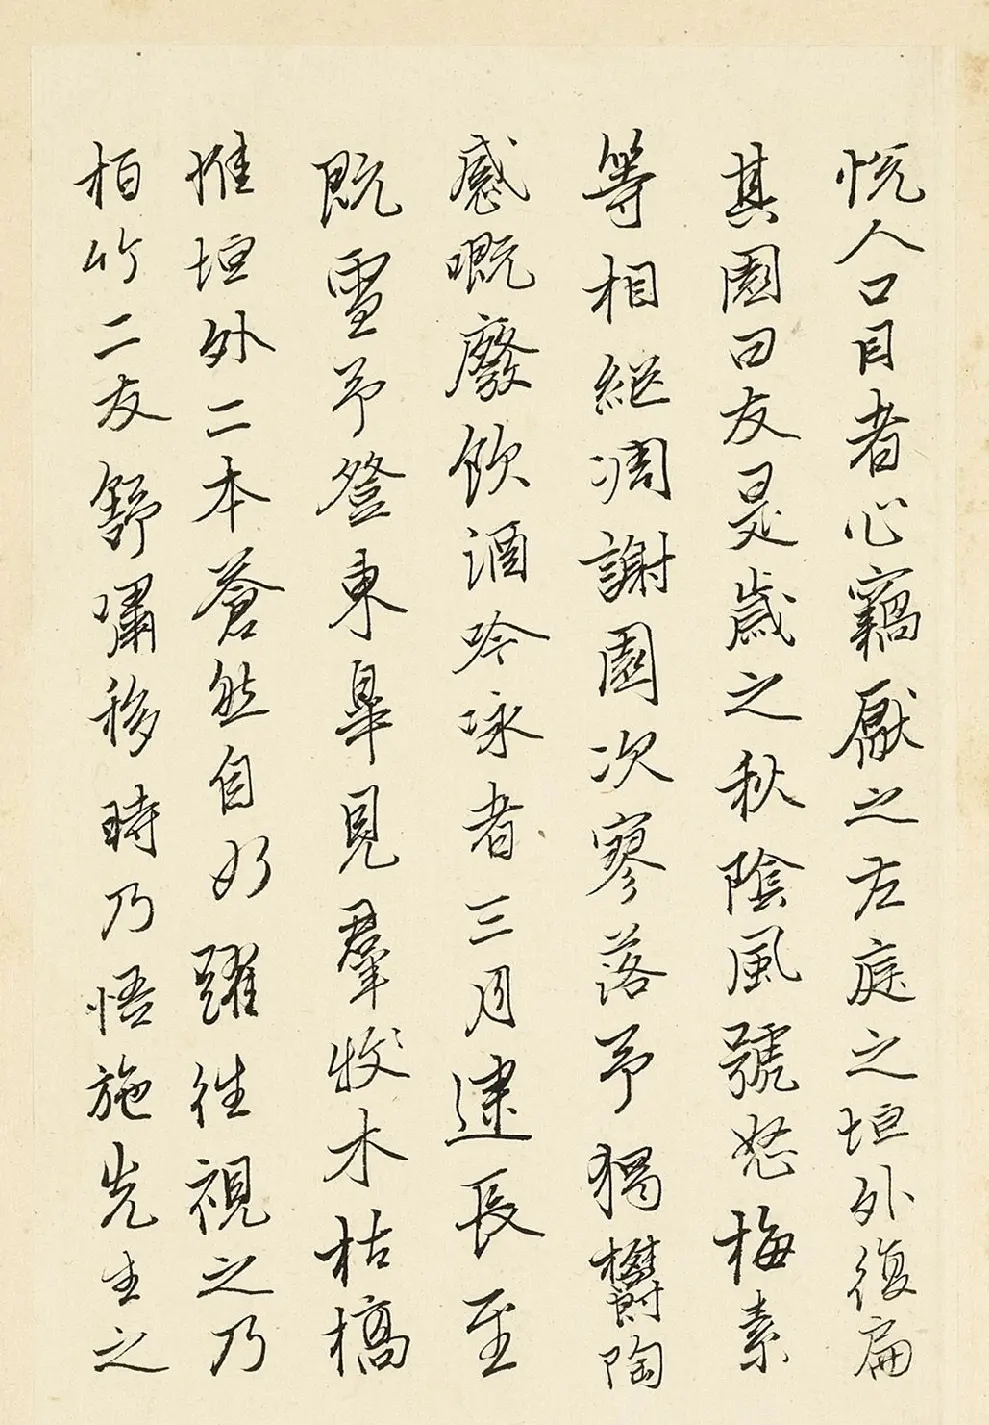 悦人口目者心竊厭之左庭之垣外復扁
其園曰友是歲之秋陰風號怒梅素
等相繼凋謝園次寥落予獨欝陶
感嘅廢飲酒吟咏者三月逮長至
既雪予登東皐見羣牧木枯槁
惟垣外二本蒼然自如躍往視之乃
柏竹二友舒嘯移時乃悟施先生之